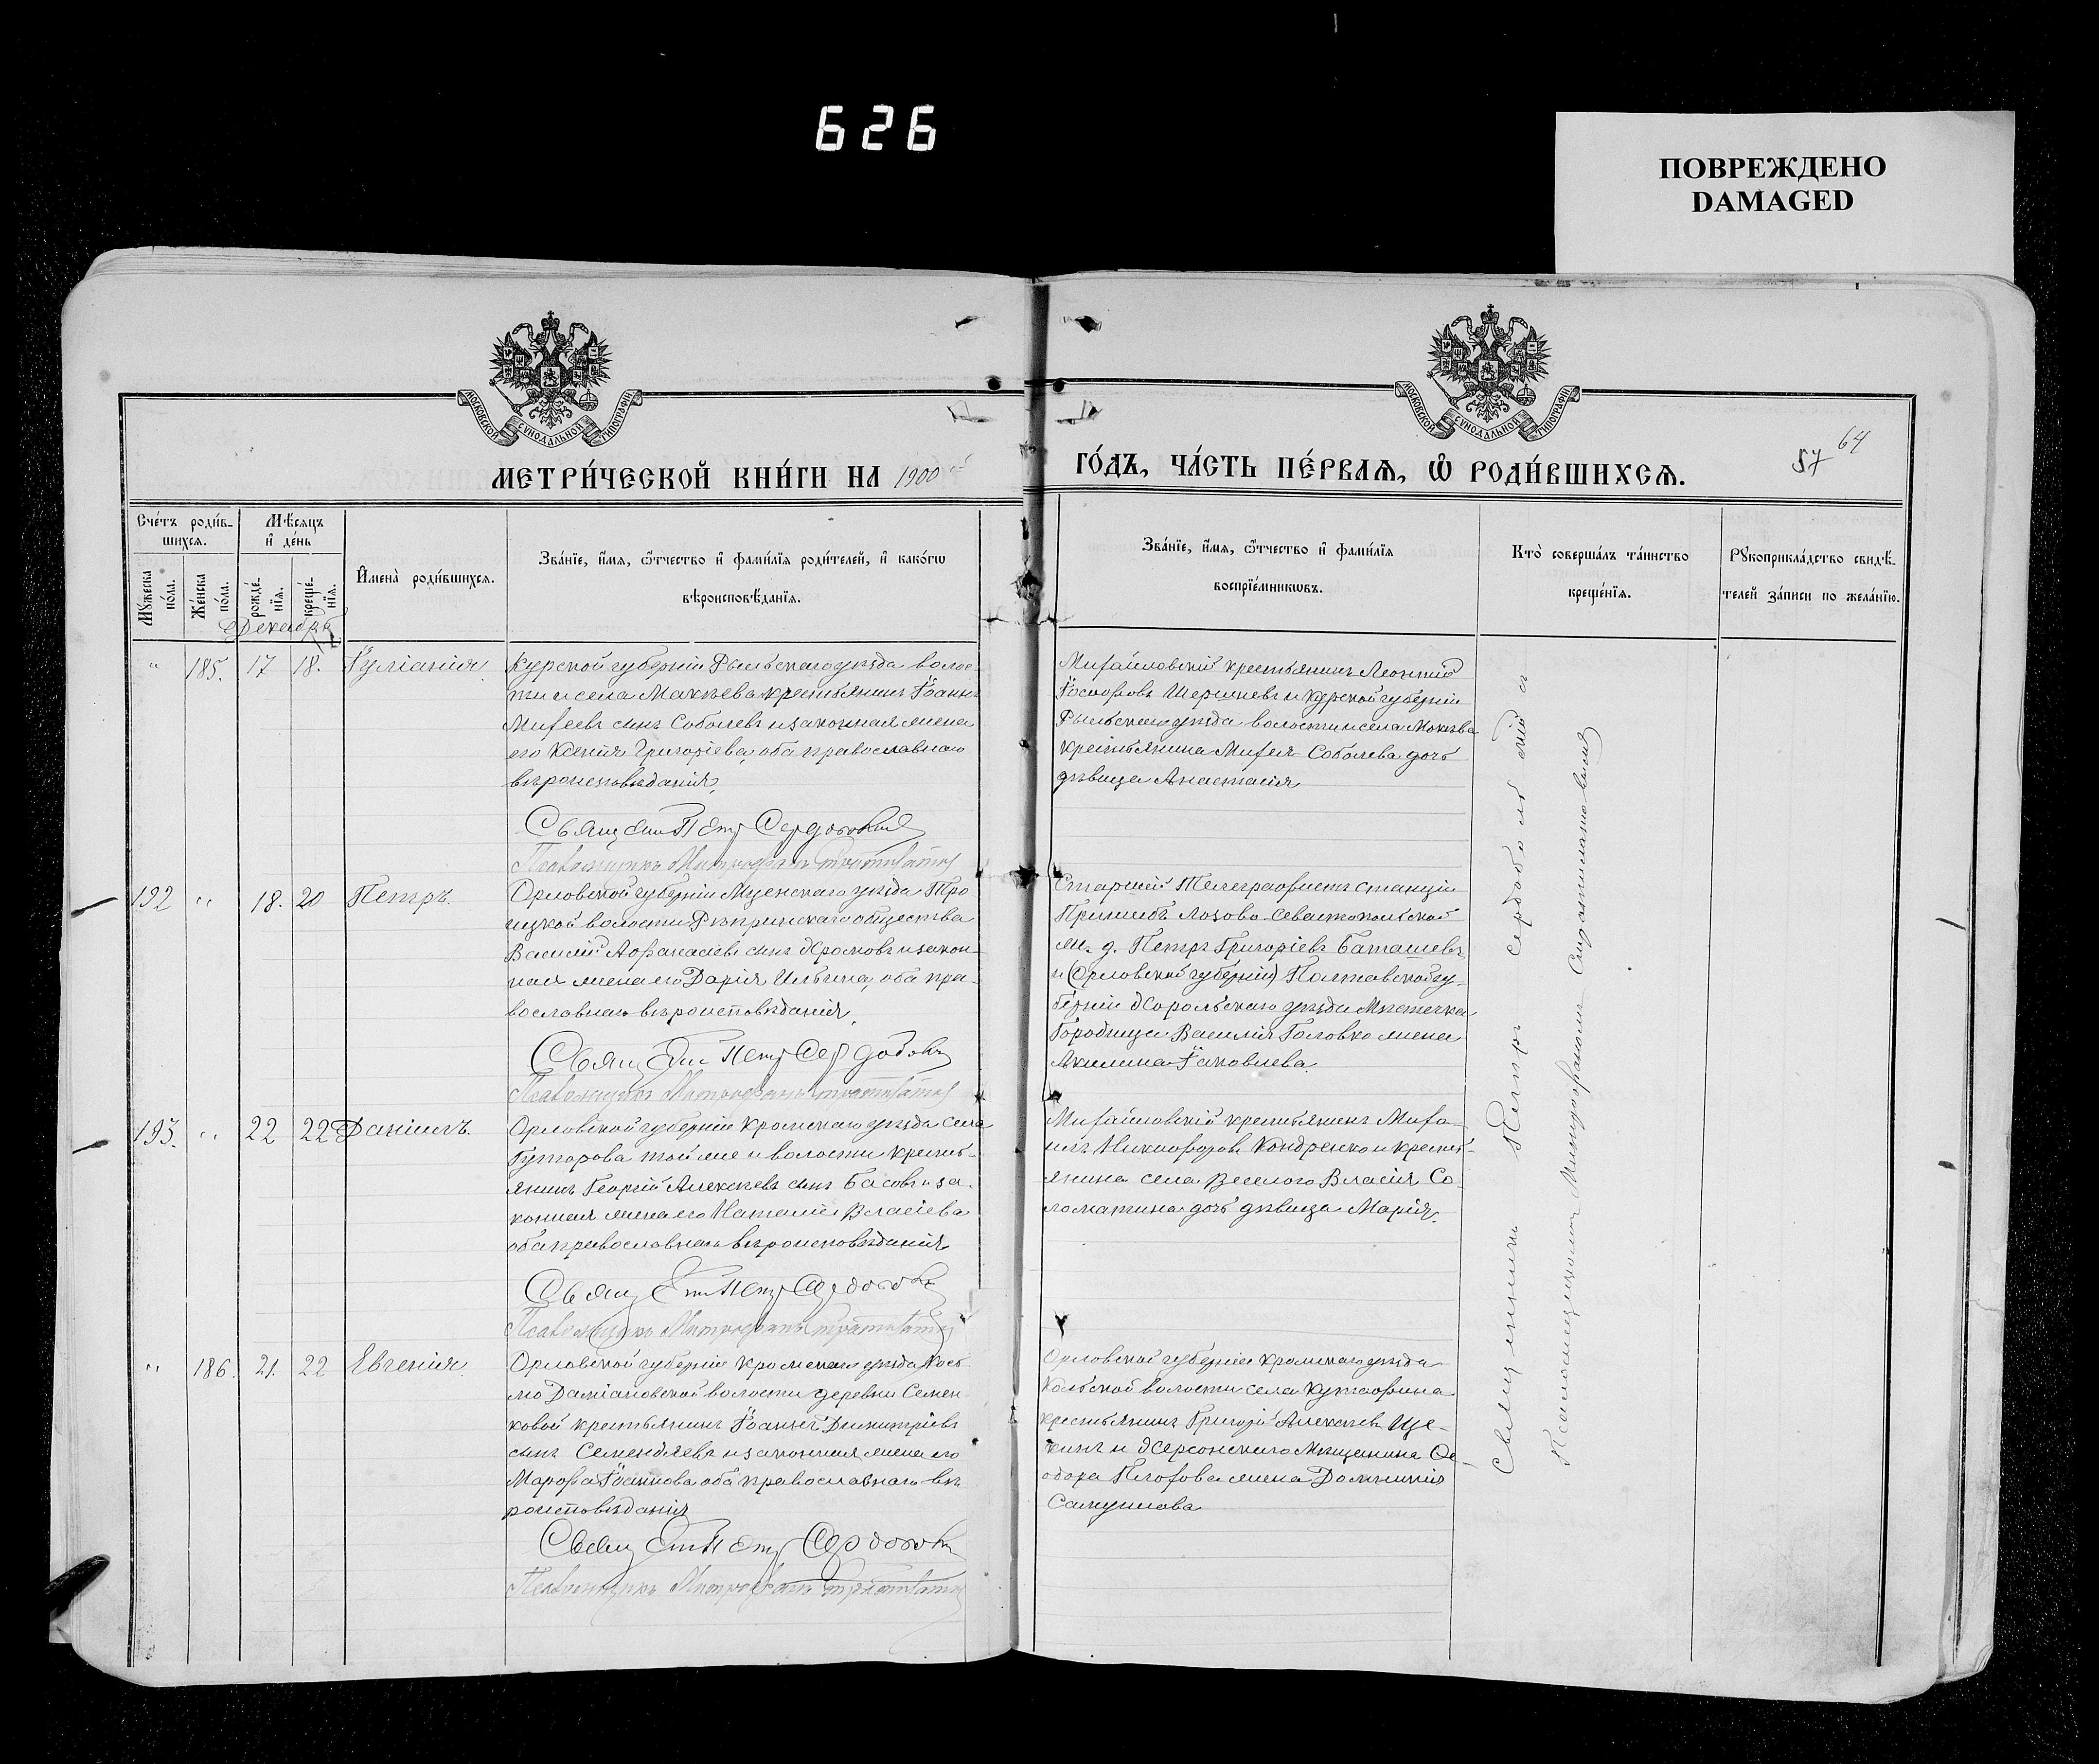 626
ПОВРЕЖДЕНО
DAMAGED
МОСКОВСКОЙ СѴНОДАЛЬНОЙ ТИПОГРАФІИ
МОСКОВСКОЙ СѴНОДАЛЬНОЙ ТИПОГРАФІИ
МЕТРИ́ЧЕСКОЙ КНИ́ГИ НА 1900
ГО́ДЪ, ЧА́СТЬ ПЕ́РВАѦ, Ѡ РОДИ́ВШИХСѦ.
57 64
Сче́тъ роди́в-
шихся.
Мꙋжеска по́ла.
Же́нска по́ла.
Мѣ́сяцъ
и҆ де́нь
рожде́-
нїя.
креще́-
нїя.
Декабрь
И҆мена̀ роди́вшихся.
Зва́нїе, и҆́мя, ѻ҆́тчество и҆ фами́лїя роди́телей, и҆ како́гѡ
вѣроисповѣ́данїя.
Зва́нїе, и҆́мя, ѻ҆́тчество и҆ фами́лїя
воспрїе́мникѡвъ.
Кто̀ соверша́лъ та́инство
креще́нїя.
Рꙋкоприкла́дство свидѣ́-
телей за́писи по жела́нїю.
" 185. 17 18. Іуліанія
Курской губерніи Рыльскаго уѣзда волос-
ти и села Макѣева крестьянинъ Іоаннъ
Миѳеевъ сынъ Соболевъ и законная жена
его Ксенія Григоріева, оба православнаго
вѣроисповѣданія.
Священ Петр
Псаломщикъ Митрофанъ
Михайловскій крестьянинъ Леонтій
Іосифовъ Шершневъ и Курской губерніи
Рыльскаго уѣзда волости и села Мокѣва
крестьянина Миѳея Соболева дочь
дѣвица Анастасія
192 " 18. 20 Петръ.
Орловской губерніи Мценскаго уѣзда Тро
ицкой волости общества
Василій Аѳанасіевъ сынъ Хромовъ и закон-
ная жена его Дарія Ильина, оба пра-
вославнаго вѣроисповѣданія.
Священ Петр
Псаломщикъ Митрофанъ
Старшій Телеграфистъ станціи
Пришибъ Лозово-Севастопольской
ж. д. Петръ Григоріевъ Баташевъ
и (Орловской губерніи) Полтавской гу-
берніи Хорольскаго уѣзда Мѣстечка
Городища Василія Головко жена
Акилина Іаковлева.
193. " 22 22 Даніилъ.
Орловской губерніи Кромскаго уѣзда села
Гуторова той же и волости кресть-
янинъ Георгій Алексѣевъ сынъ Басовъ и за-
конная жена его Наталія Власіева
оба православнаго вѣроисповѣданія
Священ Петр
Псаломщикъ Митрофанъ
Михайловскій крестьянинъ Миха-
илъ Никифоровъ Кондренко и кресть-
янина села Веселого Власія Со-
ломатина дочь дѣвица Марія.
" 186. 21. 22 Евгенія
Орловской губерніи Кромскаго уѣзда Кось-
мо Даміановской волости деревни Семен-
ковой крестьянинъ Іоаннъ Димитріевъ
сынъ Семендяевъ и законная жена его
Марѳа Іоаннова оба православнаго вѣ-
роисповѣданія
Священ Петр
Псаломщикъ Митрофанъ
Орловской губерніи Кромскаго уѣзда
волости села
крестьянинъ Григорій Алексѣевъ Ще-
кинъ и Херсонскаго Мѣщанина Ѳе-
одора жена Домникія
Самуилова
Священникъ Петръ
Псаломщикомъ Митрофаномъ